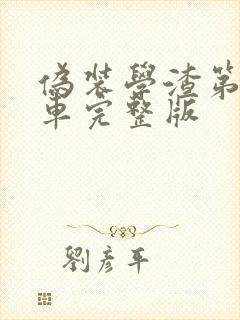 偽裝學渣第
車完整版
劉彥平